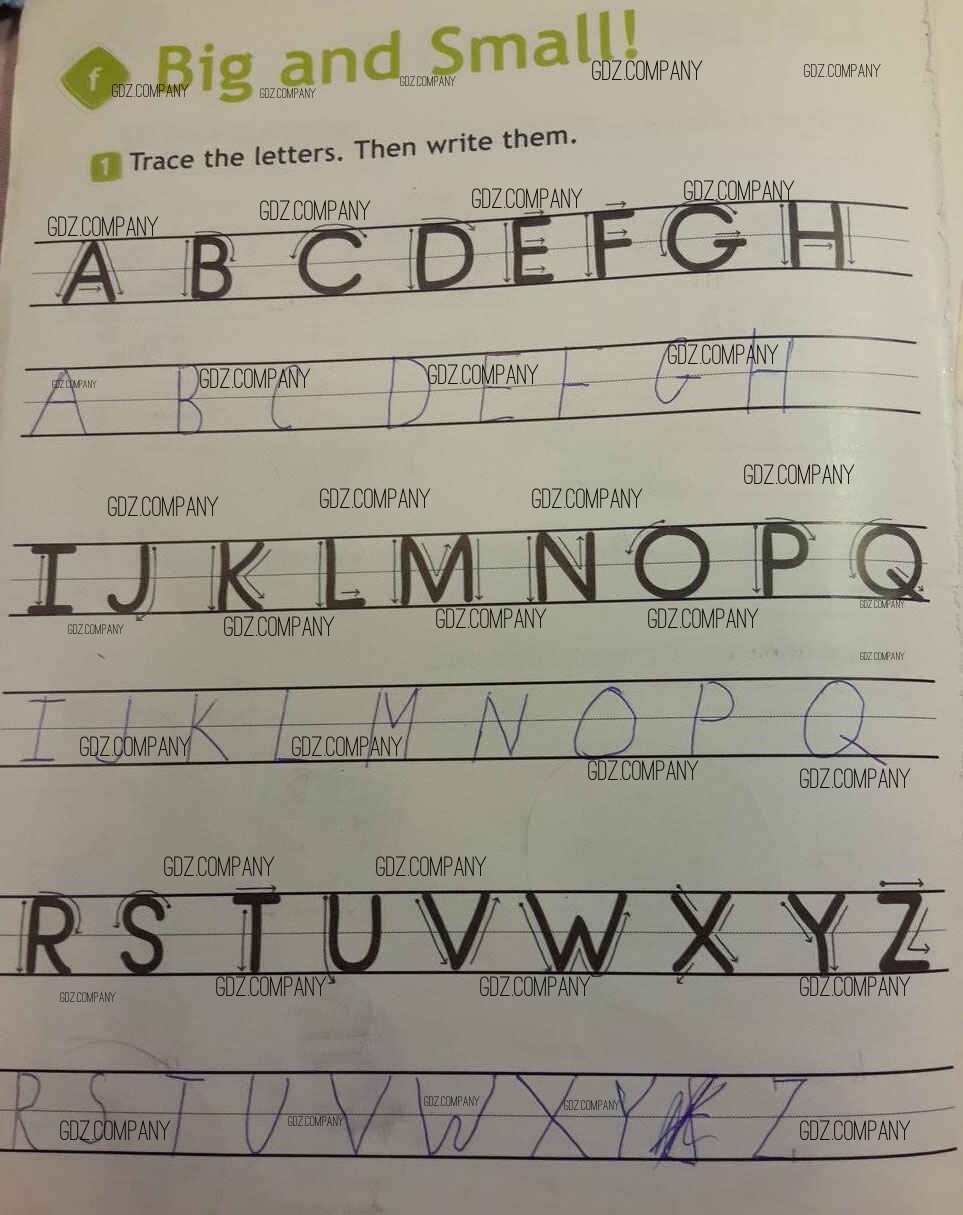 f Big and Small!
GDZ.COMPANY GDZ.COMPANY GDZ.COMPANY GDZ.COMPANY GDZ.COMPANY
1 Trace the letters. Then write them.
GDZ.COMPANY GDZ.COMPANY GDZ.COMPANY GDZ.COMPANY
A B C D E F G H
GDZ.COMPANY GDZ.COMPANY GDZ.COMPANY GDZ.COMPANY
A B C D E F G H
GDZ.COMPANY GDZ.COMPANY GDZ.COMPANY GDZ.COMPANY
I J K L M N O P Q
GDZ.COMPANY GDZ.COMPANY GDZ.COMPANY GDZ.COMPANY GDZ.COMPANY
GDZ.COMPANY
I J K L M N O P Q
GDZ.COMPANY GDZ.COMPANY GDZ.COMPANY GDZ.COMPANY
GDZ.COMPANY GDZ.COMPANY
R S T U V W X Y Z
GDZ.COMPANY GDZ.COMPANY GDZ.COMPANY GDZ.COMPANY
R S T U V W X Y Z
GDZ.COMPANY GDZ.COMPANY GDZ.COMPANY GDZ.COMPANY GDZ.COMPANY